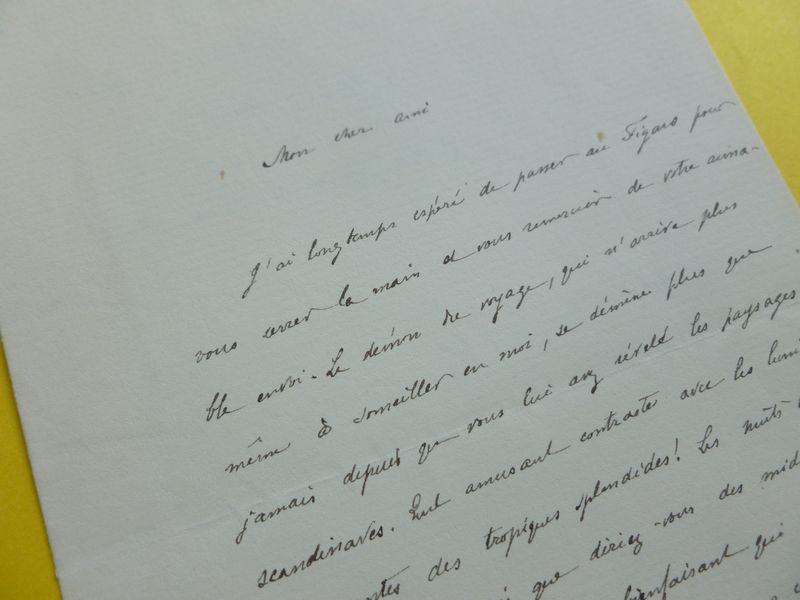 Mon cher ami
J'ai longtemps espéré de passer au Figaro pour
vous serrer la main et vous remercier de votre aima-
ble envoi. Le démon du voyage, qui n'arrive plus
même à sommeiller en moi, se démène plus que
jamais depuis que vous lui avez révélé les paysages
scandinaves. Quel amusant contraste avec les
des tropiques splendides! Les nuits
que diriez-vous des
bienfaisant qui